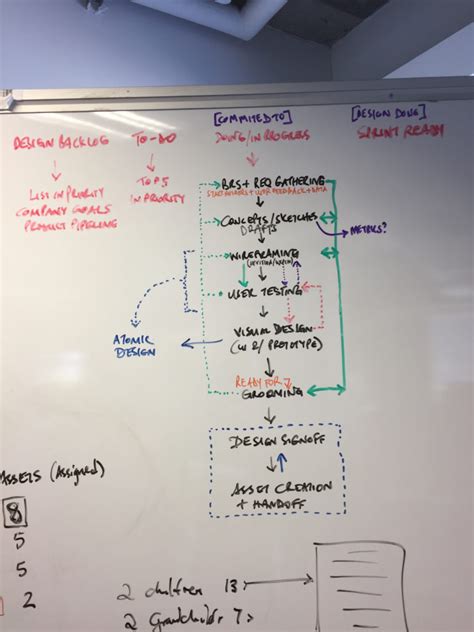 [COMMITED TO]
[DESIGN DONE]
DESIGN BACKLOG
TO-DO
DOING/IN PROGRESS
SPRINT READY
LIST IN PRIORITY
COMPANY GOALS
PRODUCT PIPELINE
TOP 5
IN PRIORITY
BRS + REQ GATHERING
CONCEPTS/SKETCHES
DRAFTS
METRICS?
WIREFRAMING
USER TESTING
VISUAL DESIGN
(UI &/ PROTOTYPE)
ATOMIC
DESIGN
READY FOR
GROOMING
DESIGN SIGNOFF
ASSET CREATION
+ HANDOFF
ASSETS (Assigned)
8
5
5
2
2 children 13
2 Grandchildr 7